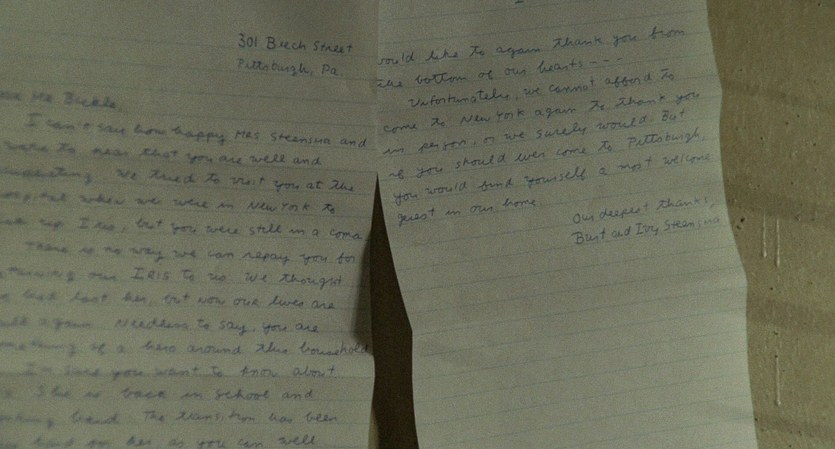 301 Beech Street
Pittsburgh, Pa.
Mr Bickle,
I can't say how happy Mrs Steensma and
to hear that you are well and
recuperating. We tried to visit you at the
ospital when we were in New York to
up Iris, but you were still in a coma
There is no way we can repay you for
returning our IRIS to us. We thought
had lost her, but now our lives are
ull again. Needless to say, you are
omething of a hero around this household
I'm sure you want to know about
She is back in school and
orking hard. The transition has been
hard on her, as you can well
would like to again thank you from
the bottom of our hearts - - -
Unfortunately, we cannot afford to
come to New York again to thank you
in person, or we surely would. But
if you should ever come to Pittsburgh,
you would find yourself a most welcome
guest in our home
Our deepest thanks,
Burt and Ivy Steensma